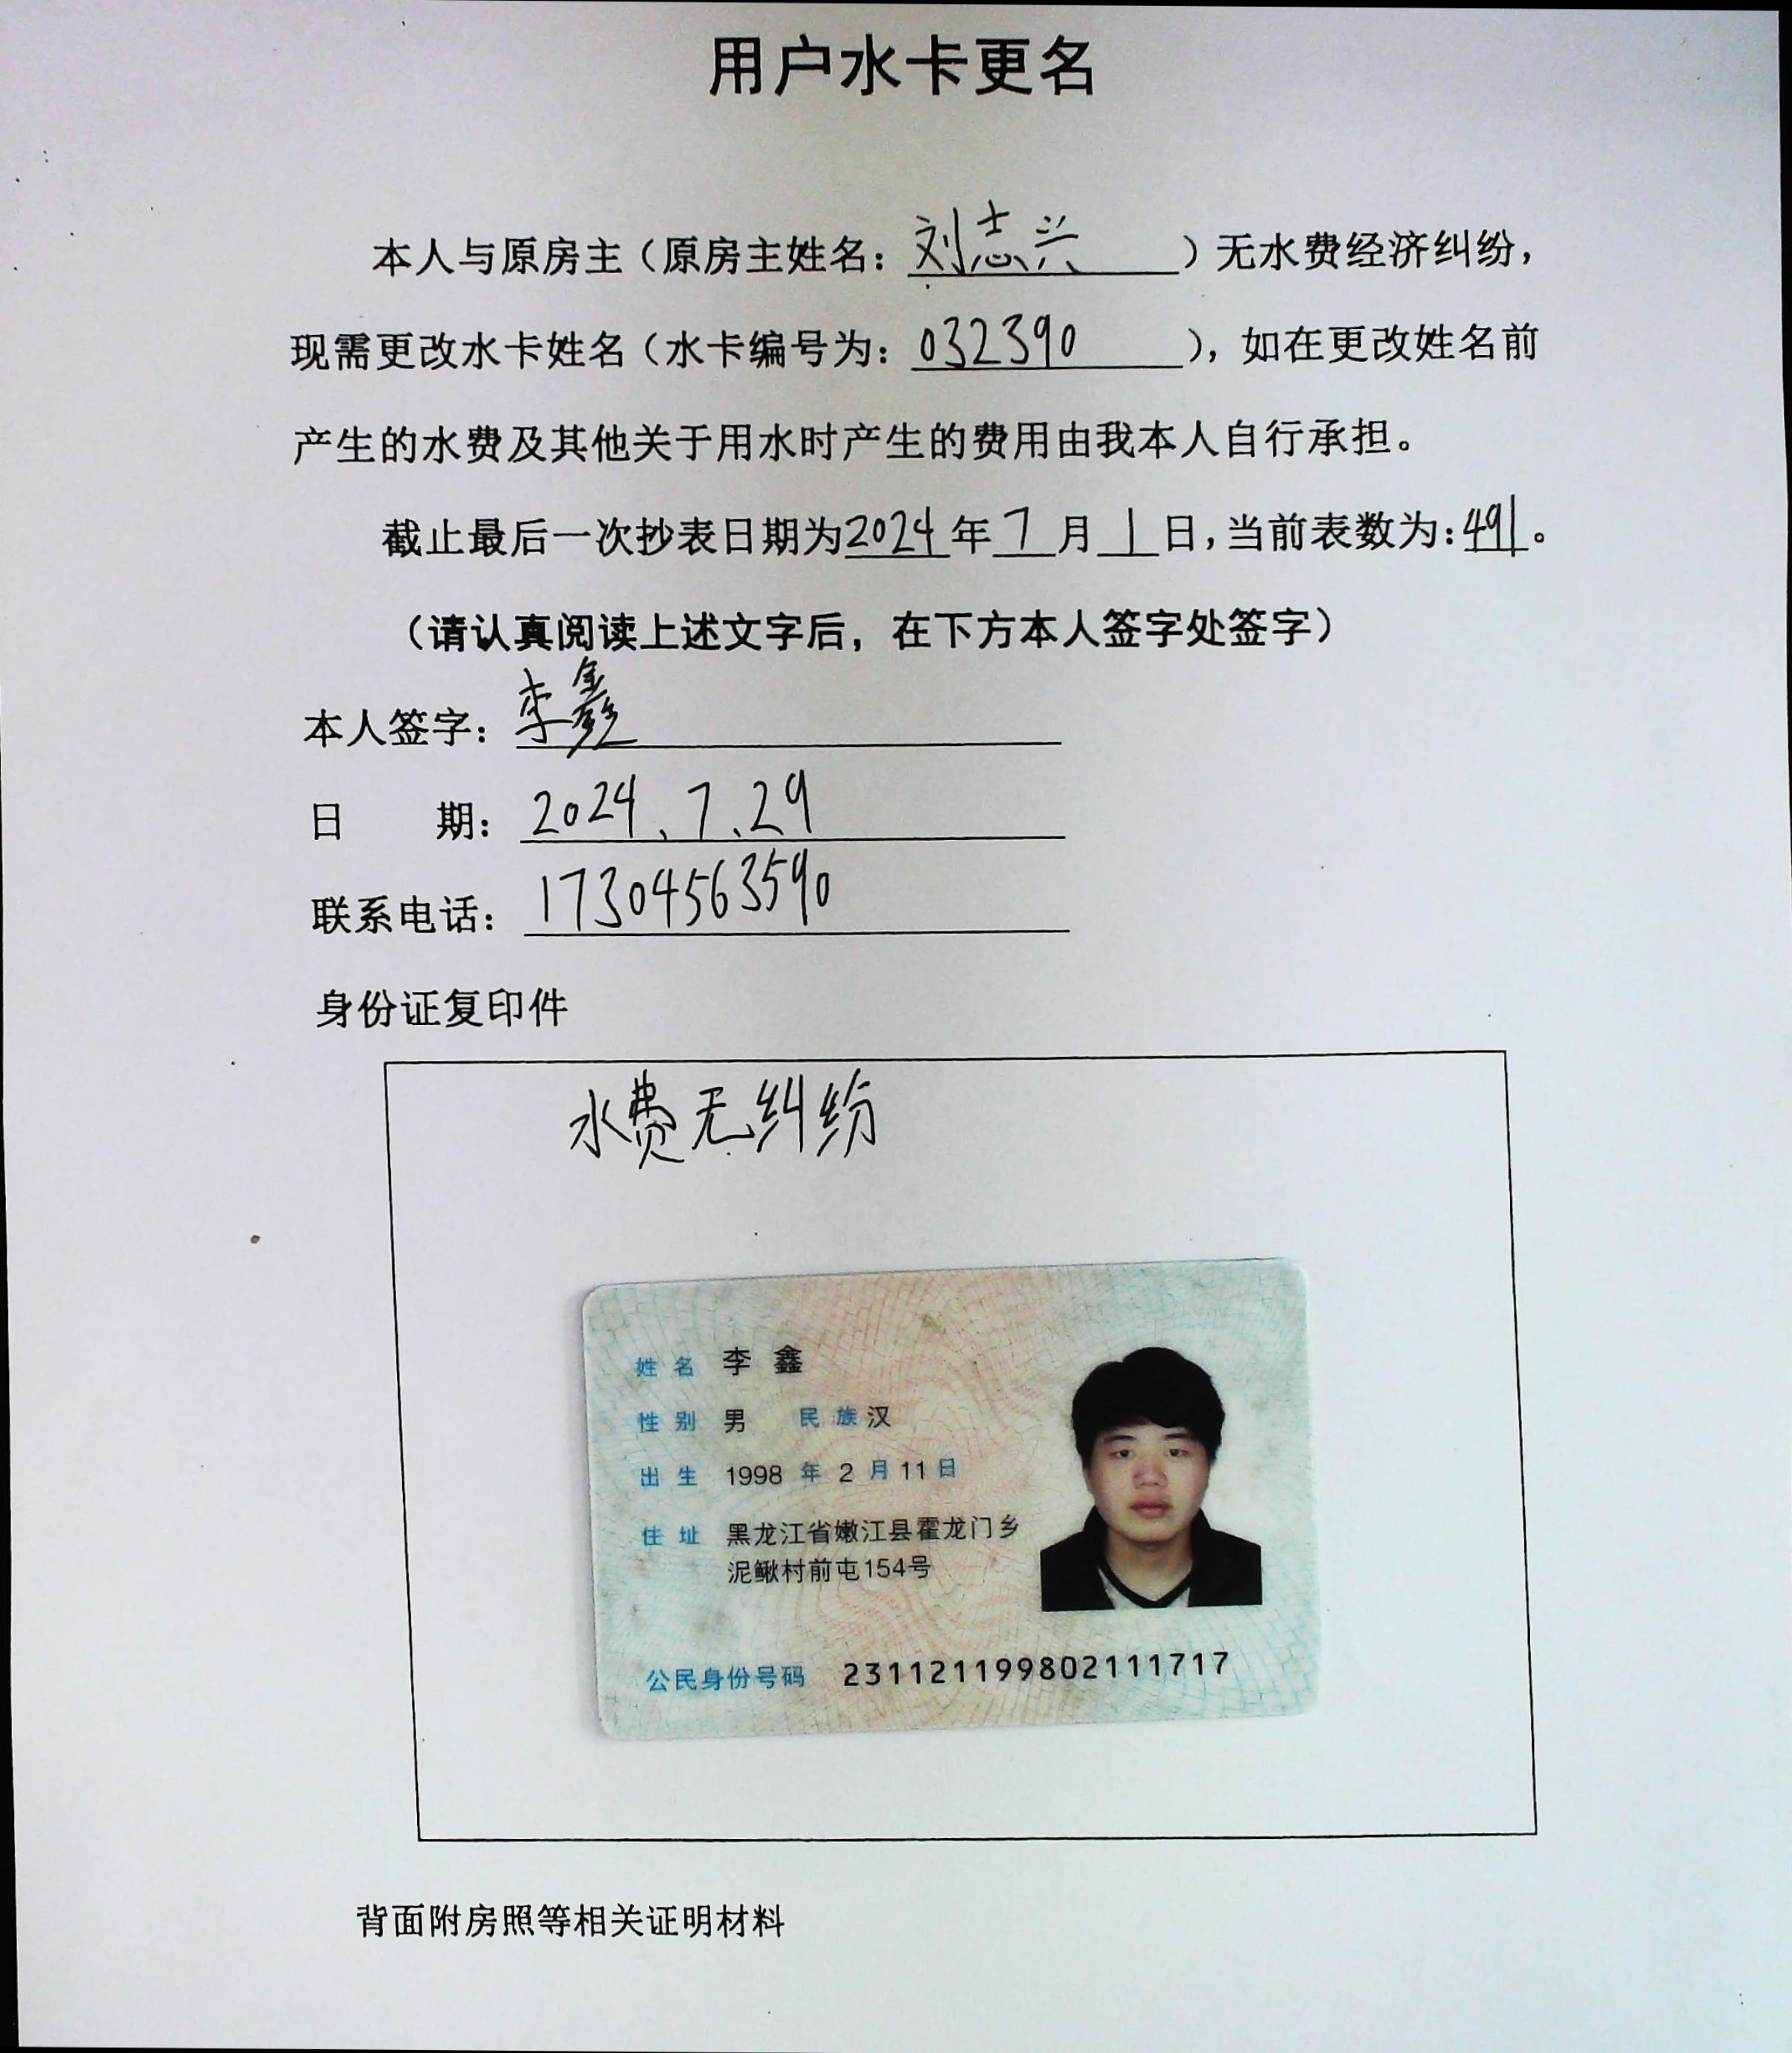 用户水卡更名
本人与原房主（原房主姓名：刘志兴）无水费经济纠纷，
现需更改水卡姓名（水卡编号为：032390），如在更改姓名前
产生的水费及其他关于用水时产生的费用由我本人自行承担。
截止最后一次抄表日期为2024年7月1日，当前表数为：491。
（请认真阅读上述文字后，在下方本人签字处签字）
本人签字：李鑫
日 期：2024、7、29
联系电话：17304563590
身份证复印件
水费无纠纷
姓名 李鑫
性别 男 民族 汉
出生 1998 年 2 月 11 日
住址 黑龙江省嫩江县霍龙门乡
泥鳅村前屯154号
公民身份号码 231121199802111717
背面附房照等相关证明材料